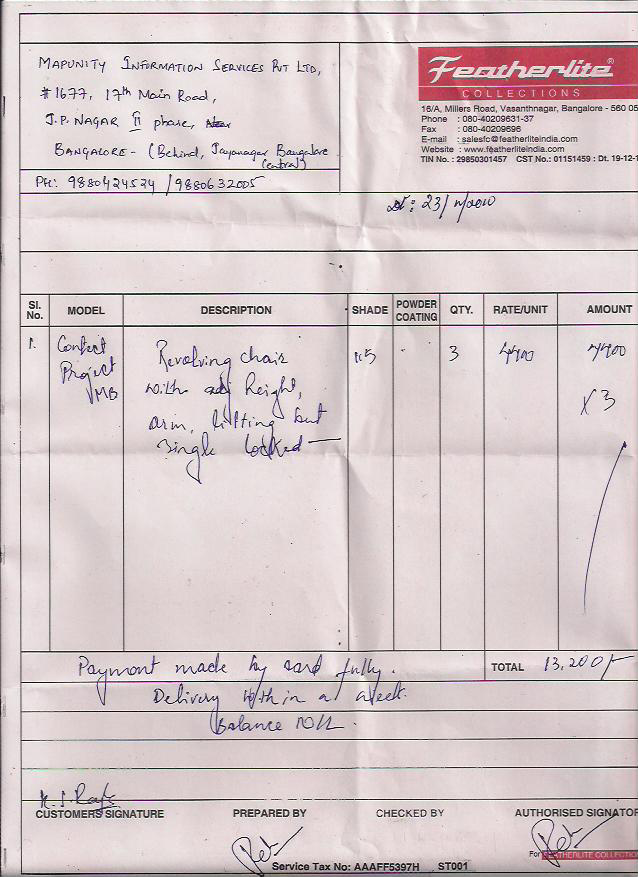 MAPUNITY INFORMATION SERVICES PVT LTD,
#1677, 17th Main Road,
J.P. NAGAR II phase,
BANGALORE - (Behind, Jayanagar Bangalore
Central)
PH: 9880424524 / 9880632005
Featherlite®
COLLECTIONS
16/A, Millers Road, Vasanthnagar, Bangalore - 560 05
Phone : 080-40209631-37
Fax : 080-40209696
E-mail : salesfc@featherliteindia.com
Website : www.featherliteindia.com
TIN No. : 29850301457 CST No.: 01151459 : Dt. 19-12-1
Dt: 23/11/2010
Sl. No. MODEL DESCRIPTION SHADE POWDER COATING QTY. RATE/UNIT AMOUNT
1. Contact Revolving chair 115 3 4400 4400
Project with adj height, X 3
MB arm, lifting but
single locked
Payment made by card fully. TOTAL 13,200/-
Delivery within a week.
Balance NIL.
CUSTOMERS SIGNATURE PREPARED BY CHECKED BY AUTHORISED SIGNATOR
For FEATHERLITE COLLECTION
Service Tax No: AAAFF5397H ST001